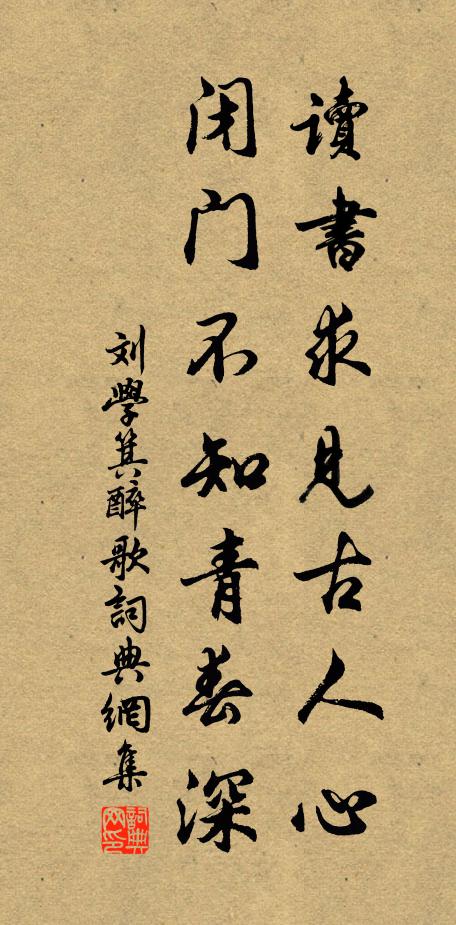 讀書求見古人心
闭门不知青春深
刘學箕醉歌詞典網集
詞典網印